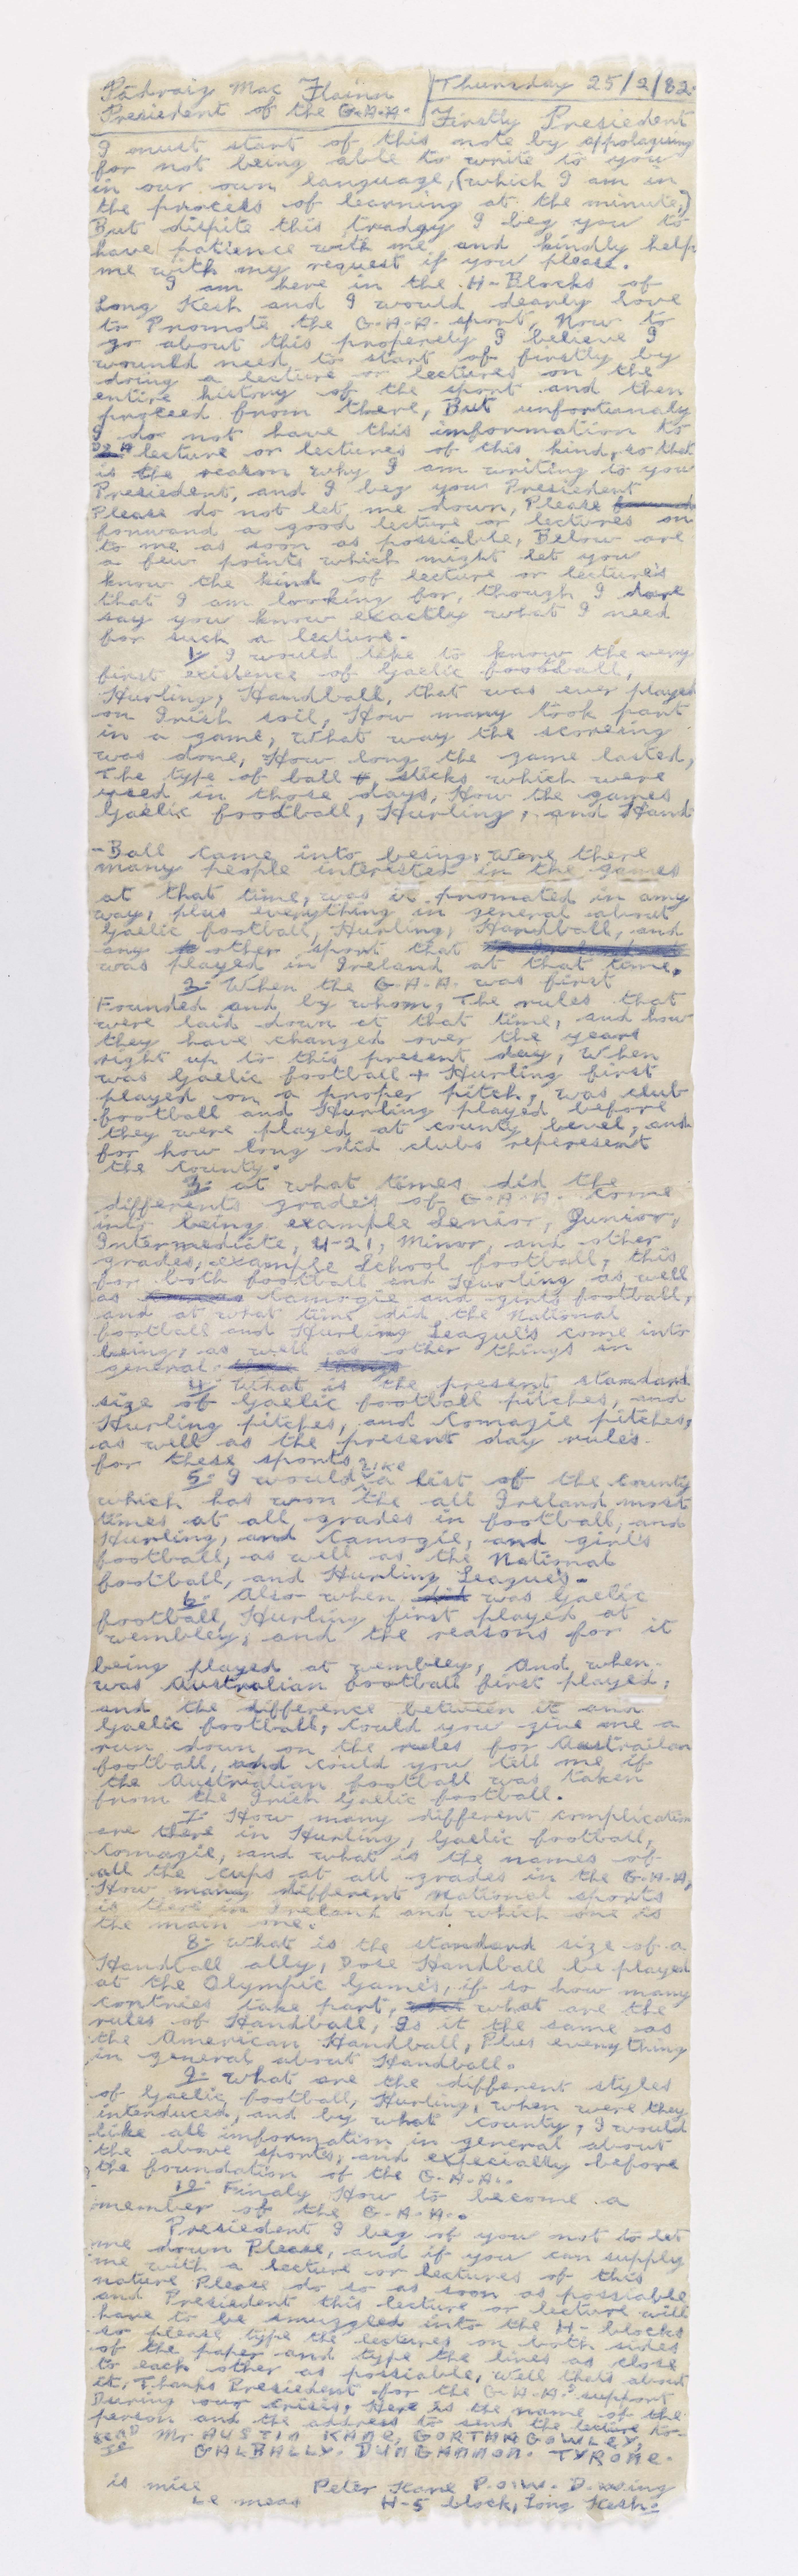 Pádraig Mac Flainn
Presiedent of the G.A.A.
Thursday 25/2/82.
Firstly Presiedent
I must start of this note by appolagising
for not being able to write to you
in our own language, (which I am in
the process of learning at the minute,)
But dispite this tradgy I beg you to
have patience with me, and kindly help
me with my request if you please.
I am here in the H-Blocks of
Long Kesh and I would dearly love
to Promote the G.A.A. sport, Now to
go about this properely I believe I
would need to start of firstly by
doing a lecture or lectures on the
entire history of the sport and then
proceed from there, But unfortunaly
I do not have this information to
do a lecture or lectures of this kind, so that
is the reason why I am writing to you
Presiedent, and I beg you Presiedent
Please do not let me down, Please
forward a good lecture or lectures on
to me as soon as possiable, Below are
a few points which might let you
know the kind of lecture or lecture's
that I am looking for, though I dare
say you know exactly what I need
for such a lecture.
1: I would like to know the very
first existence of Gaelic football,
Hurling, Handball, that was ever played
on Irish soil, How many took part
in a game, What way the scoreing
was done, How long the game lasted,
The type of ball + sticks which were
used in those days, How the games
Gaelic foodball, Hurling, and Hand
-Ball came into being, were there
many people interested in the games
at that time, was it promated in any
way, plus everything in general about
Gaelic football, Hurling, Handball, and
any other sport that
was played in Ireland at that time.
2: When the G.A.A. was first
Founded and by whom, The rules that
were laid down at that time, and how
they have changed over the years
right up to this present day, When
was Gaelic football + Hurling first
played on a proper pitch, was club
football and Hurling played before
they were played at county level, and
for how long did clubs reperesent
the county.
3: at what times did the
differents grade's of G.A.A. come
into being, example Senior, Junior,
Intermediate, U-21, Minor, and other
grades, example School football, this
for both football and Hurling as well
as Camogie and girls football,
and at what time did the National
football and Hurling League's come into
being, as well as other things in
general.
4: What is the present standard
size of Gaelic football pitches, and
Hurling pitches, and Comagie pitches,
as well as the present day rules
for these sports.
5: I would like a list of the County
which has won the all Ireland most
times at all grades in football, and
Hurling, and Camogie, and girl's
football, as well as the National
football, and Hurling League's.
6: Also when was Gaelic
football, Hurling first played at
wembley, and the reasons for it
being played at wembley, And when
was Australian football first played,
and the difference between it and
Gaelic football, Could you give me a
run down on the rules for Austrailan
football, and could you tell me if
the Australian football was taken
from the Irish Gaelic football.
7: How many different complication
are there in Hurling, Gaelic football,
Comagie, and what is the names of
all the cups at all grades in the G.A.A,
How many different National sports
is there in Ireland and which one is
the main one.
8: What is the standard size of a
Handball ally, Dose Handball be played
at the Olympic Game's, if so how many
contries take part, what are the
rules of Handball, Is it the same as
the American Handball, Plus everything
in general about Handball.
9: What are the different styles
of Gaelic football, Hurling, when were they
interduced, and by what county, I would
like all information in general about
the above sports, and especially before
the foundation of the G.A.A..
10: Finaly How to become a
member of the G.A.A..
Presiedent I beg of you not to let
me down Please, and if you can supply
me with a lecture or lectures of this
nature Please do so as soon as possiable
and Presiedent this lecture or lecture will
have to be smuggled into the H-blocks
so please type the lectures on both sides
of the paper and type the lines as close
to each other as possiable, Well thats about
it, Thanks Presiedent for the G.A.A.s support
During our crisis, Here is the name of the
person and the address to send the lecture to.
Mr AUSTIN KANE, GORTHAGOWLEY,
GALBALLY. DUNGANNON. TYRONE.
is mise Peter Kane P.O.W.
le meas H-5 block, Long Kesh.